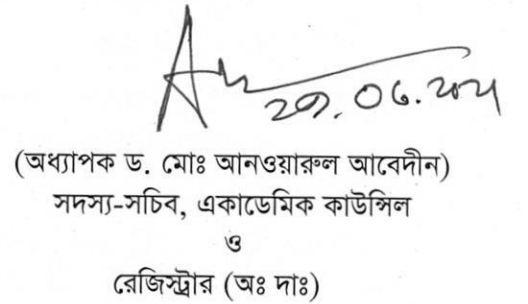 (অধ্যাপক ড. মোঃ আনওয়ারুল আবেদীন)
সদস্য-সচিব, একাডেমিক কাউন্সিল
ও
রেজিস্ট্রার (অঃ দাঃ)